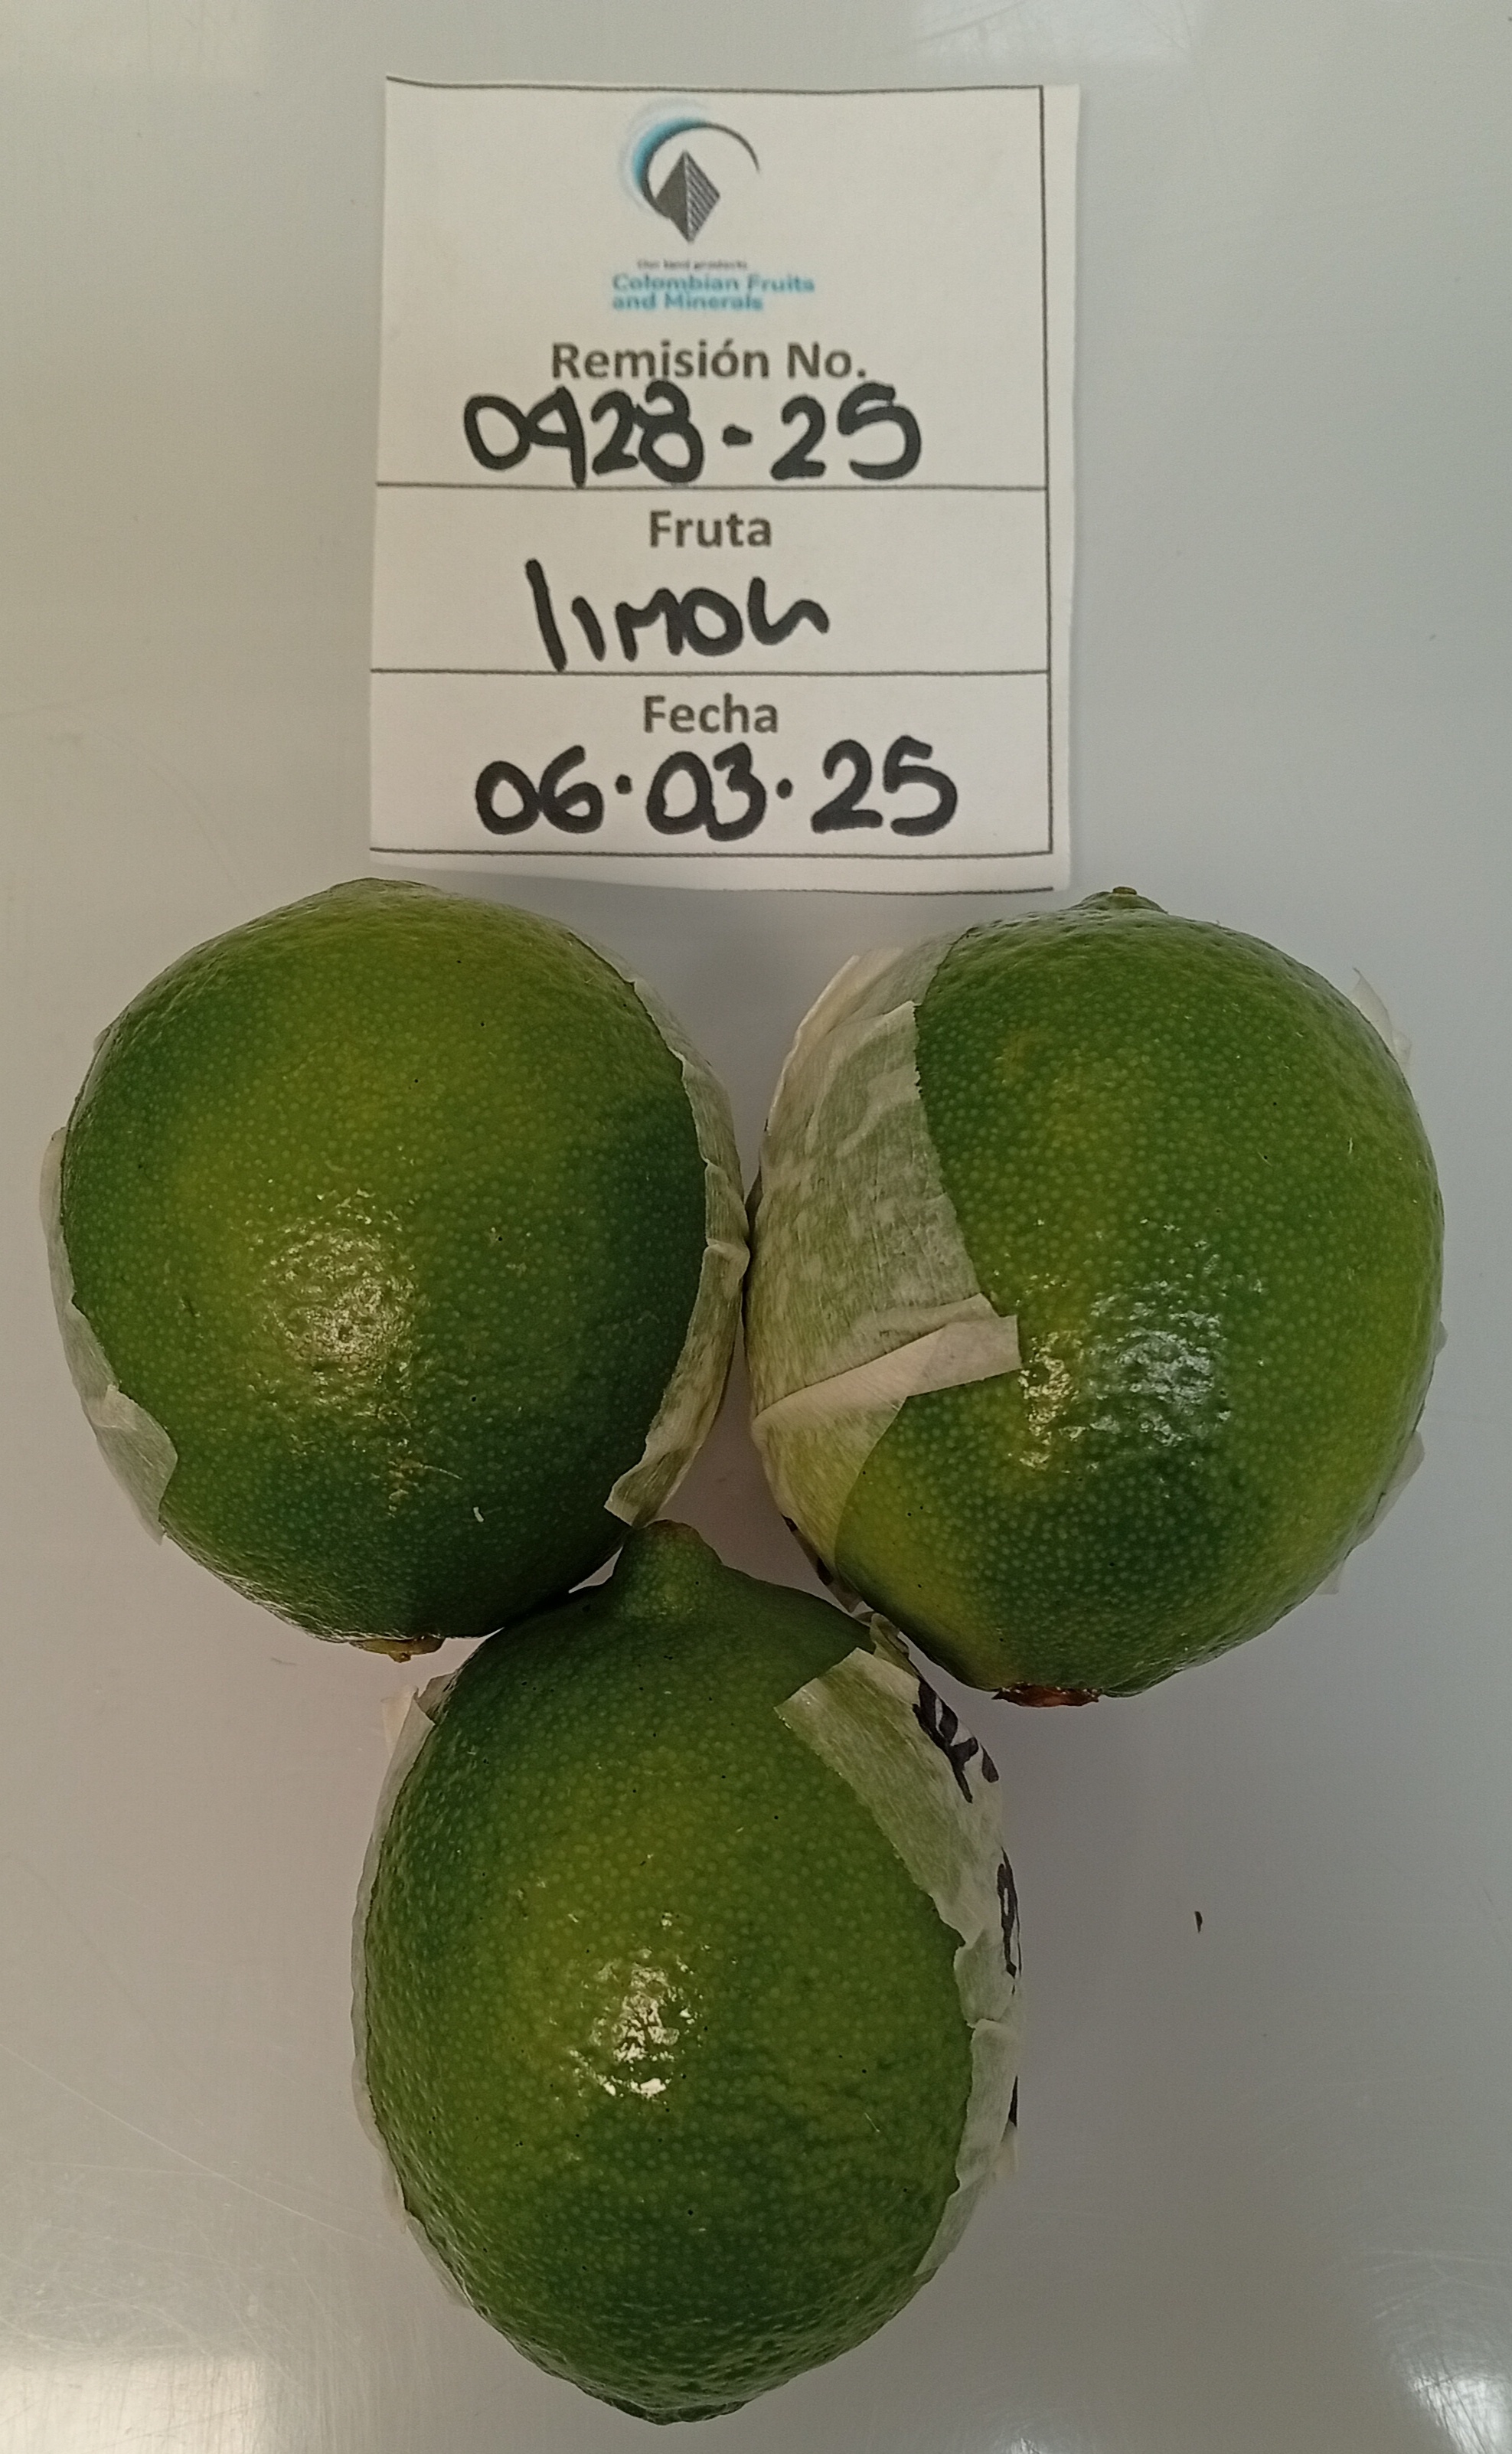 Our land products
Colombian Fruits
and Minerals
Remisión No.
0928-25
Fruta
limon
Fecha
06.03.25